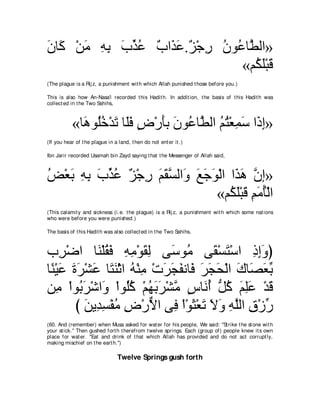 «الطَّاعُونُ رِجْزٌ.عَذَابٌ عُذِّبَ بِهِ مَنْ كَانَ
قَبْلَكُم»
(The plague is a Rijz, a punishment with which Allah punished those before you.)
This is also how An-Nasa'i recorded this Hadith. In addition, the basis of this Hadith was
collected in the Two Sahihs,
«إِذَا سَمِعْتُمُ الطَّاعُونَ بِأَرْضٍ فَلَا تَدْخُلُوهَا»
(If you hear of the plague in a land, then do not enter it.)
Ibn Jarir recorded Usamah bin Zayd saying that the Messenger of Allah said,
«إِنَّ هَذَا الْوَجَعَ وَالسَّقَمَ رِجْزٌ عُذِّبَ بِهِ بَعْضُ
الْأُمَمِ قَبْلَكُم»
(This calamity and sickness (i.e. the plague) is a Rijz, a punishment with which some nations
who were before you were punished.)
The basis of this Hadith was also collected in the Two Sahihs.
(وَإِذِ اسْتَسْقَى مُوسَى لِقَوْمِهِ فَقُلْنَا اضْرِب
بِّعَصَاكَ الْحَجَرَ فَانفَجَرَتْ مِنْهُ اثْنَتَا عَشْرَةَ عَيْنًا
قَدْ عَلِمَ كُلُّ أُنَاسٍ مَّشْرَبَهُمْ كُلُوا وَاشْرَبُوا مِن
رِّزْقِ اللَّهِ وَلاَ تَعْثَوْا فِي الأَرْضِ مُفْسِدِينَ )
(60. And (remember) when Musa asked for water for his people, We said: "Strike the stone with
your stick.'' Then gushed forth therefrom twelve springs. Each (group of) people knew its own
place for water. "Eat and drink of that which Allah has provided and do not act corruptly,
making mischief on the earth.'')
Twelve Springs gush forth